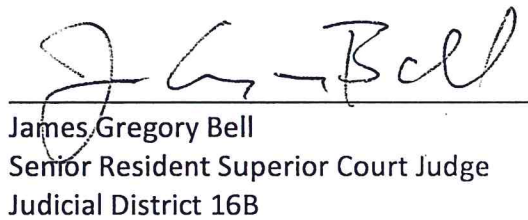 James Gregory Bell
Senior Resident Superior Court Judge
Judicial District 16B